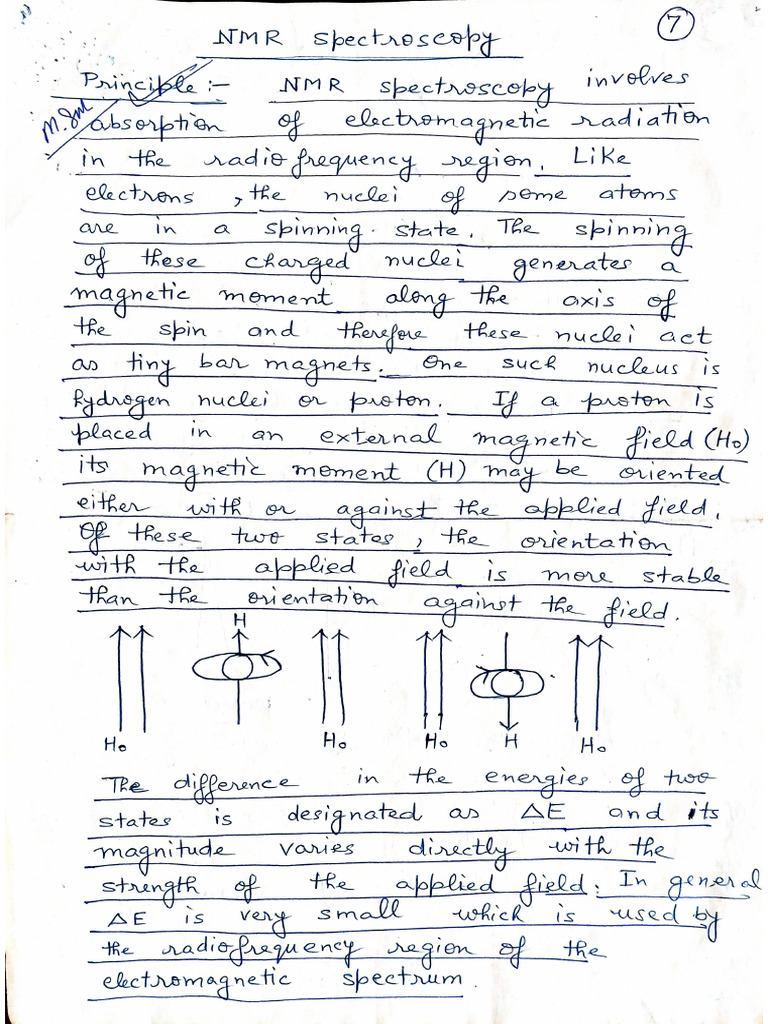 7
NMR spectroscopy
Principle :- NMR spectroscopy involves
absorption of electromagnetic radiation
in the radiofrequency region. Like
electrons, the nuclei of some atoms
are in a spinning state. The spinning
of these charged nuclei generates a
magnetic moment along the axis of
the spin and therefore these nuclei act
as tiny bar magnets. One such nucleus is
hydrogen nuclei or proton. If a proton is
placed in an external magnetic field (Ho)
its magnetic moment (H) may be oriented
either with or against the applied field.
Of these two states, the orientation
with the applied field is more stable
than the orientation against the field.
H
Ho Ho Ho H Ho
The difference in the energies of two
states is designated as ΔE and its
magnitude varies directly with the
strength of the applied field. In general
ΔE is very small which is used by
the radiofrequency region of the
electromagnetic spectrum.